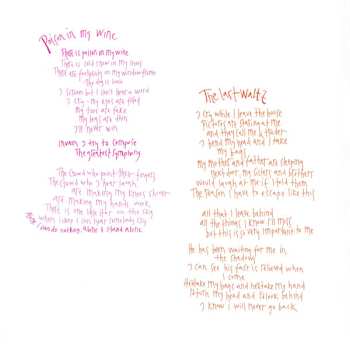 Poison in my Wine
There is poison in my wine
There is cold snow in my shoes
There are footprints on my windowframe
The dog is
I scream but I can't hear a word
I cry - my eyes are
my toes are fake
my legs are thin
I'll never win
I try to compose
The greatest symphony
The crowd who point their fingers
The crowd who I hear laugh
are making my knees shiver
are making my hands
There is one star on the sky
when I can hear somebody
I can do nothing. Alone I stand alone.
The last waltz
I cry while I leave the house
Pictures are staring at me
and they call me a
I bend my head and I take
my bags
my mother and father are sleeping
next door, my sisters and brothers
would laugh at me if I told them
The reason I have to escape like this
all that I leave behind
all the things I know I'll miss
but this is so very important to me
He has been waiting for me in
the shadow
I can see his face is relieved when
I come
He take my bags and he take my hand
I turn my head and I look behind
I know I will never go back